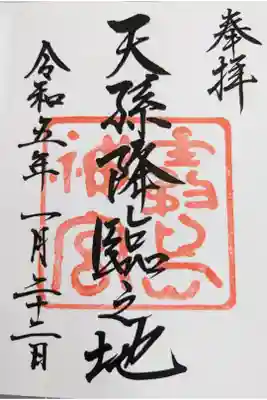 奉拝
天孫降臨之地
神宮
令和五年 一月二十二日